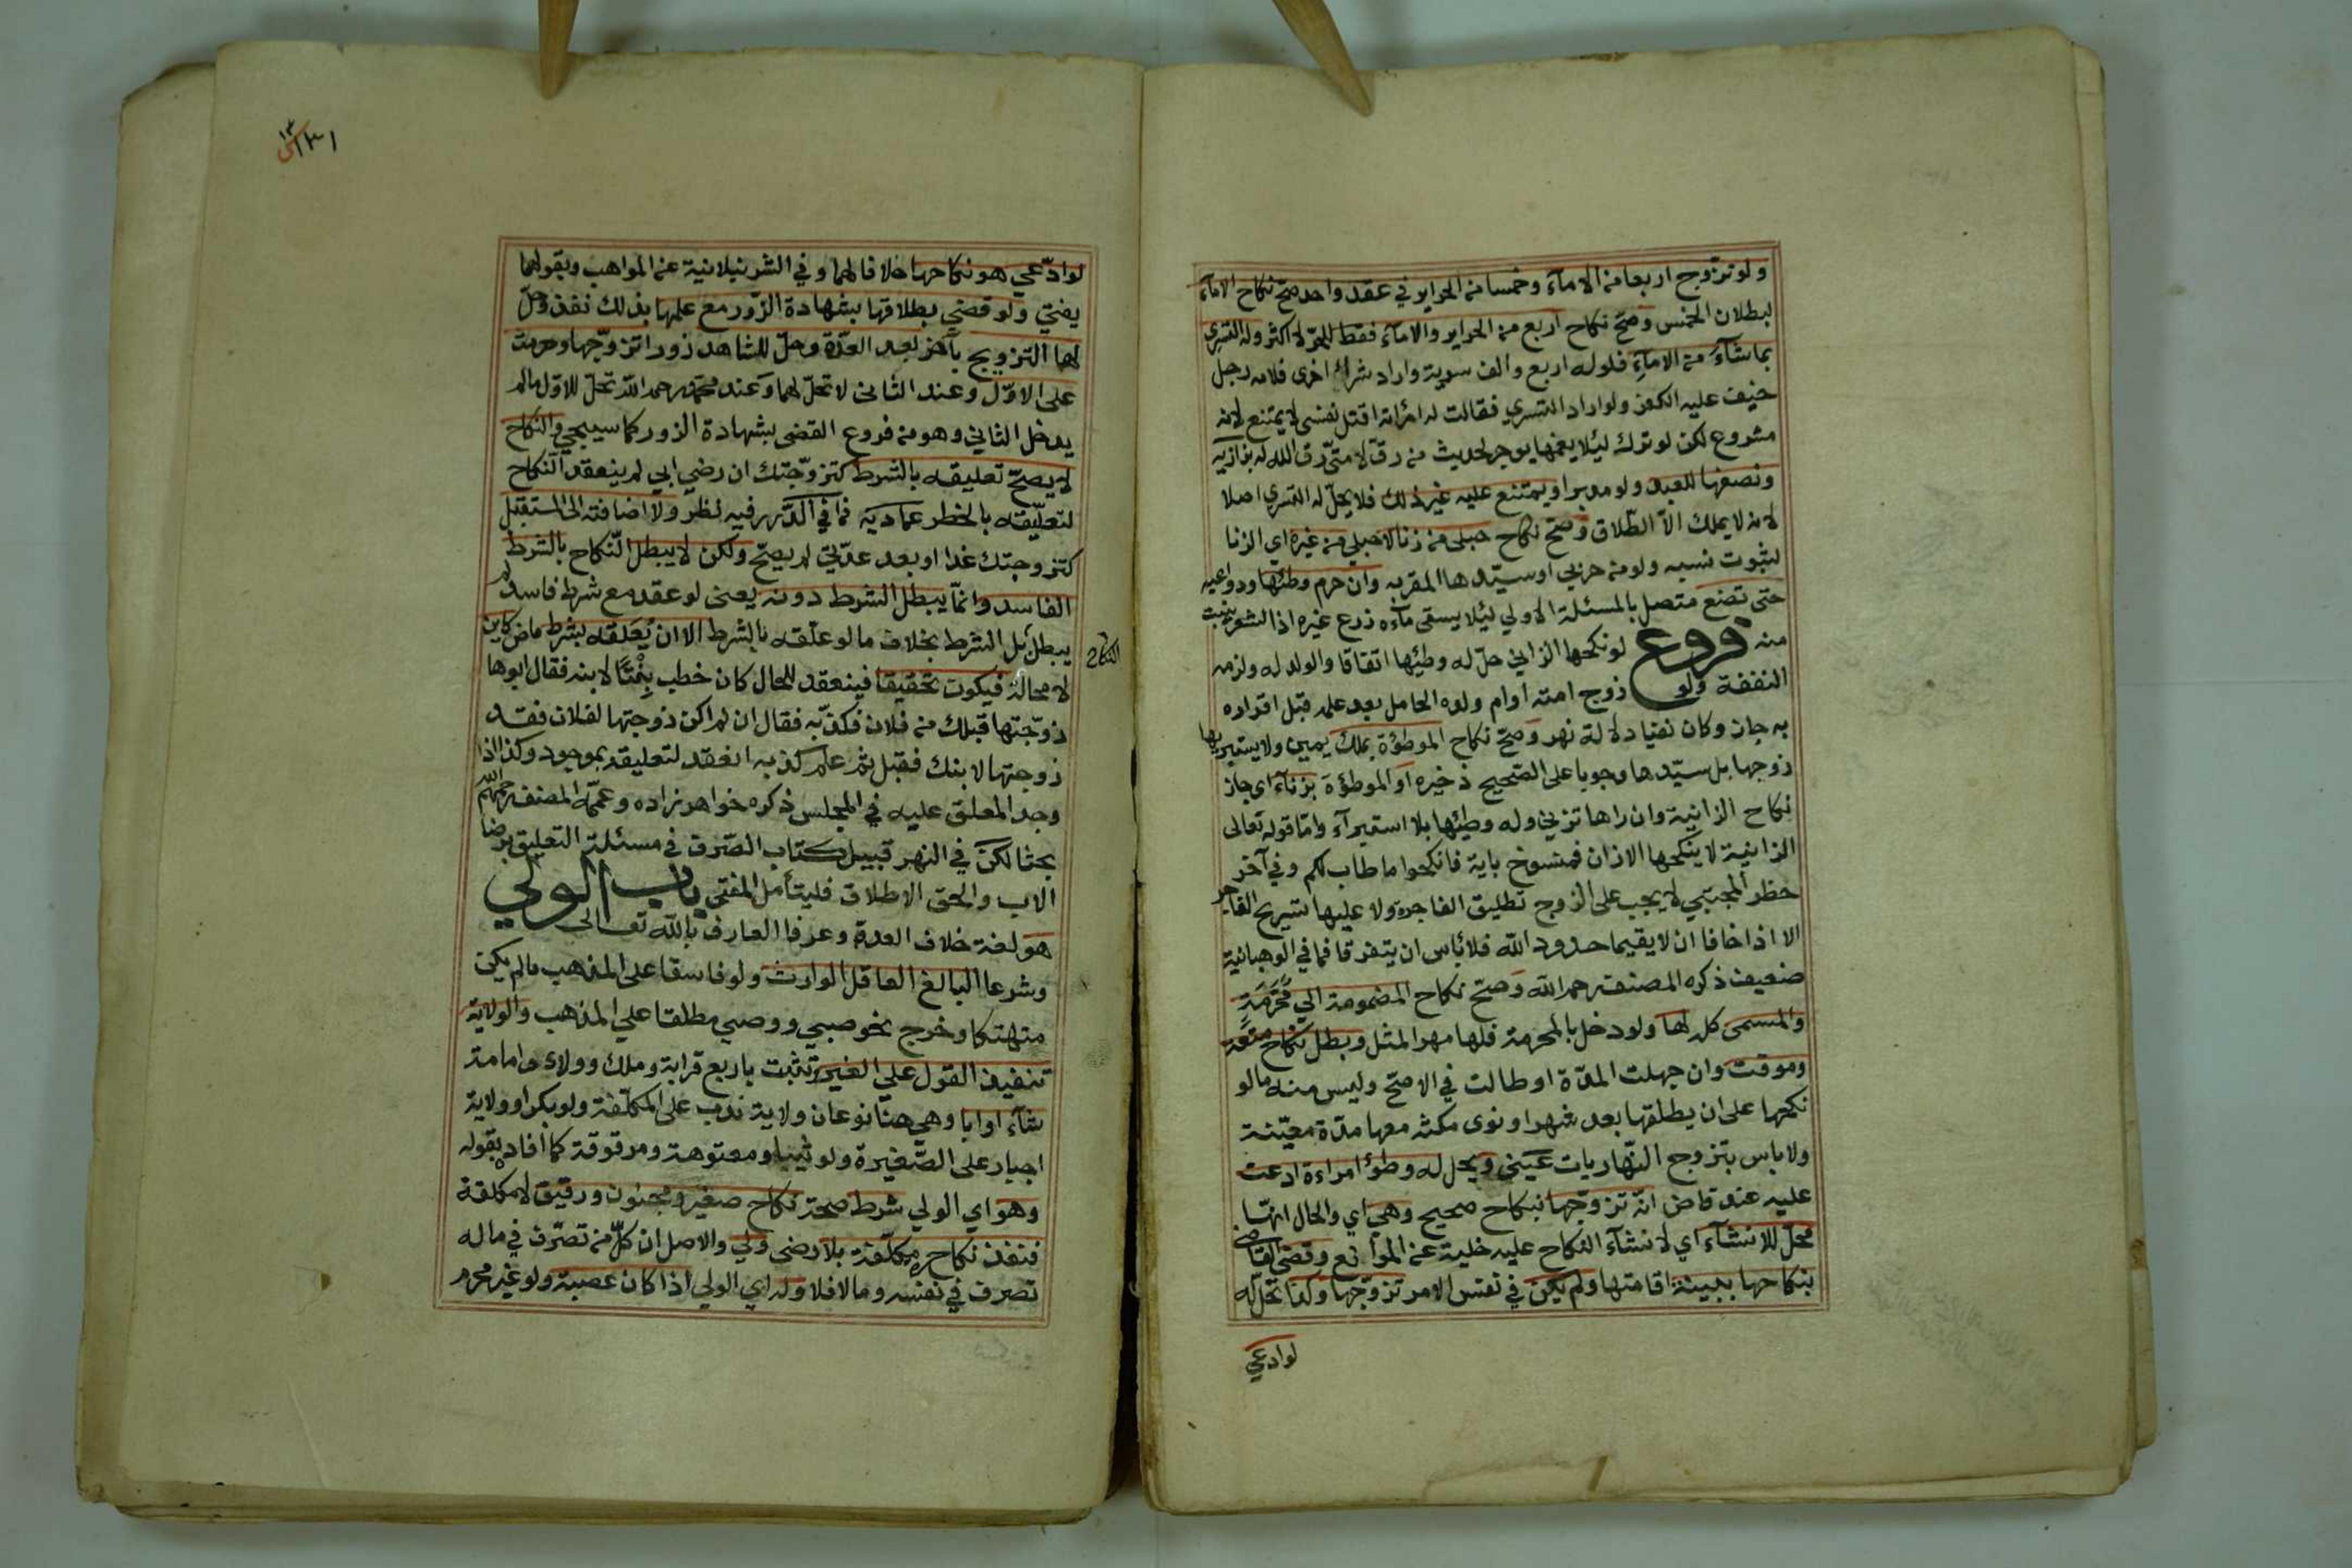 ولو تزوج اربعا من الامآء وخمسا من الحراير في عقد واحد صح نكاح الامآء
لبطلان الخمس وصح نكاح اربع من الحراير والامآء فقط للحر لا اكثر وله التسرى
بما شآء من الامآء فلو له اربع والف سرية واراد شراء اخرى فلامه رجل
خيف عليه الكفر ولو اراد التسري فقالت له امرأته اقتل نفسى لا يمتنع لانه
مشروع لكن لو ترك ليلا يغمها يوجر لحديث من رق لامتى رق الله له بزازيه
ونصفها للعبد ولو مدبرا ويمتنع عليه غير ذلك فلا يحل له التسري اصلا
لانه لا يملك الا الطلاق وصح نكاح حبلى من زنا لا حبلى من غيره اي الزنا
لثبوت نسبه ولو من حربي او سيدها المقر به وان حرم وطئها ودواعيه
حتى تضع متصل بالمسئلة الاولي ليلا يسقى مآءه زرع غيره اذ الشعر ينبت
منه فروع لو نكحها الزاني حل له وطئها اتفاقا والولد له ولزمه
النفقة ولو زوج امته او ام ولده الحامل بعد علمه قبل اقراره
به جاز وكان نفيا دلالة نهر وصح نكاح الموطؤة بملك يمين ولا يستبريها
زوجها بل سيدها وجوبا على الصحيح ذخيره او الموطؤة بزناء اى جاز
نكاح الزانية وان راها تزني وله وطئها بلا استبرآء واما قوله تعالى
الزانية لا ينكحها الا زان فمنسوخ باية فانكحوا ما طاب لكم وفي آخر
حظر المجتبي لا يجب على الزوج تطليق الفاجرة ولا عليها تسريح الفاجر
الا اذا خافا ان لا يقيما حدود الله فلا باس ان يتفرقا فما في الوهبانية
ضعيف ذكره المصنف رحمه الله وصح نكاح المضمومة الي محرمة
والمسمى كله لها ولو دخل بالمحرمة فلها مهر المثل وبطل نكاح متعة
وموقت وان جهلت المدة او طالت في الاصح وليس منه ما لو
نكحها على ان يطلقها بعد شهر او نوى مكثه معها مدة معينة
ولا باس بتزوج النهاريات عينى ويحل له وطؤ امراءة ادعت
عليه عند قاض انه تزوجها بنكاح صحيح وهي اي والحال انها
محل للانشآء اي لانشآء النكاح عليه خلية عن الموانع وقضى القاضى
بنكاحها ببينة اقامتها ولم يكن في نفس الامر تزوجها وكذا تحل له
لوادعي
١٣١
لو ادعي هو نكاحها خلافا لهما وفي الشرنبلانية عن المواهب وبقولهما
يفتي ولو قضي بطلاقها بشهادة الزور مع علمها بذلك نفذ وحل
لها التزويج بآخر بعد العدة وحل للشاهد زورا تزوجها وحرمت
على الاول وعند الثانى لا تحل لهما وعند محمد رحمه الله تحل للاول ما لم
يدخل الثاني وهو من فروع القضى بشهادة الزور كما سيجي والنكاح
لا يصح تعليقه بالشرط كتزوجتك ان رضي ابي لم ينعقد النكاح
لتعليقه بالخطر عماديه فما في الدرر فيه نظر ولا اضافته الى المستقبل
كتزوجتك غدا او بعد غد لم يصح ولكن لا يبطل النكاح بالشرط
الفاسد وانما يبطل الشرط دونه يعنى لو عقد مع شرط فاسد لم
يبطل بل الشرط بخلاف ما لو علقه بالشرط الا ان يعلقه بشرط ماض كاين
النكاح
لا محالة فيكون تحقيقا فينعقد للحال كان خطب بنتا لابنه فقال ابوها
زوجتها قبلك من فلان فكذبه فقال ان لم اكن زوجتها لفلان فقد
زوجتها لابنك فقبل ثم علم كذبه انعقد لتعليقه بموجود وكذا اذا
وجد المعلق عليه في المجلس ذكره خواهر زاده وعممه المصنف رحمه الله
بحثا لكن في النهر قبيل كتاب الصرف في مسئلة التعليق برضا
الاب والحق الاطلاق فليتأمل المفتى باب الولي
هو لغة خلاف العدو وعرفا العارف بالله تعالى
وشرعا البالغ العاقل الوارث ولو فاسقا على المذهب ما لم يكن
متهتكا وخرج نحو صبي ووصي مطلقا على المذهب والولاية
تنفيذ القول على الغير تثبت باربع قرابة وملك وولاء وامامة
شآء او ابا وهي هنا نوعان ولاية ندب على المكلفة ولو بكرا وولاية
اجبار على الصغيرة ولو ثيبا ومعتوهة ومرقوقة كما أفاده بقوله
وهو اي الولي شرط صحة نكاح صغير ومجنون ورقيق لا مكلفة
فنفذ نكاح حرة مكلفة بلا رضى ولي والاصل ان كل من تصرف في ماله
تصرف في نفسه وما لا فلا وله اي الولي اذا كان عصبة ولو غير محرم